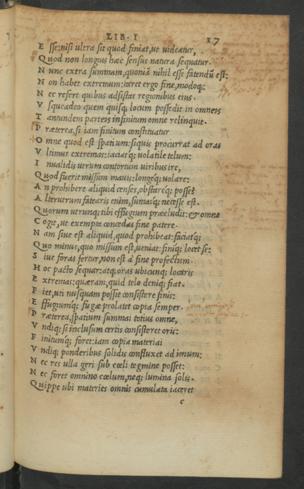 LIB. I 17
E sse: nisi ultra sit quod finiat, ut uideatur,
Q uod non longius hæc sensus natura sequatur.
N unc extra summam, quoniã nihil esse fatendũ est:
N on habet extremum: caret ergo fine, modoq;
N ec refert quibus adsistas regionibus eius.
V squeadeo quem quisq; locum possedit in omneis
T antundem parteis infinitum omne relinquit.
P ræterea, si iam finitum constituatur
O mne quod est spatium: siquis procurrat ad oras
V ltimus extremas: iaciatq; uolatile telum:
I nualidis utrum contortum uiribus ire,
Q uo fuerit missum mauis: longeq; uolare:
A n prohibere aliquid censes, obstareq; posse?
A lterutrum fatearis enim, sumasq; necesse est.
Q uorum utrunq; tibi effugium præcludit: & omne
C ogit, ut exempto concedas fine patere.
N am siue est aliquid, quod prohibeat: faciatq;
Q uo minus, quo missum est, ueniat: finiq; locet se:
S iue foras fertur, non est a fine profectum.
H oc pacto sequar: atq; oras ubicunq; locaris
E xtremas: quæram, quid telo deniq; fiat.
F iet, uti nusquam possit consistere finis:
E ffugiumq; fugæ prolatet copia semper.
P ræterea, spatium summai totius omne,
V ndiq; si inclusum certis consisteret oris:
F initumq; foret: iam copia materiai
V ndiq; ponderibus solidis confluxet ad imum:
N ec res ulla geri sub cœli tegmine posset:
N ec foret omnino cœlum, neq; lumina solis.
Q uippe ubi materies omnis cumulata iaceret
c